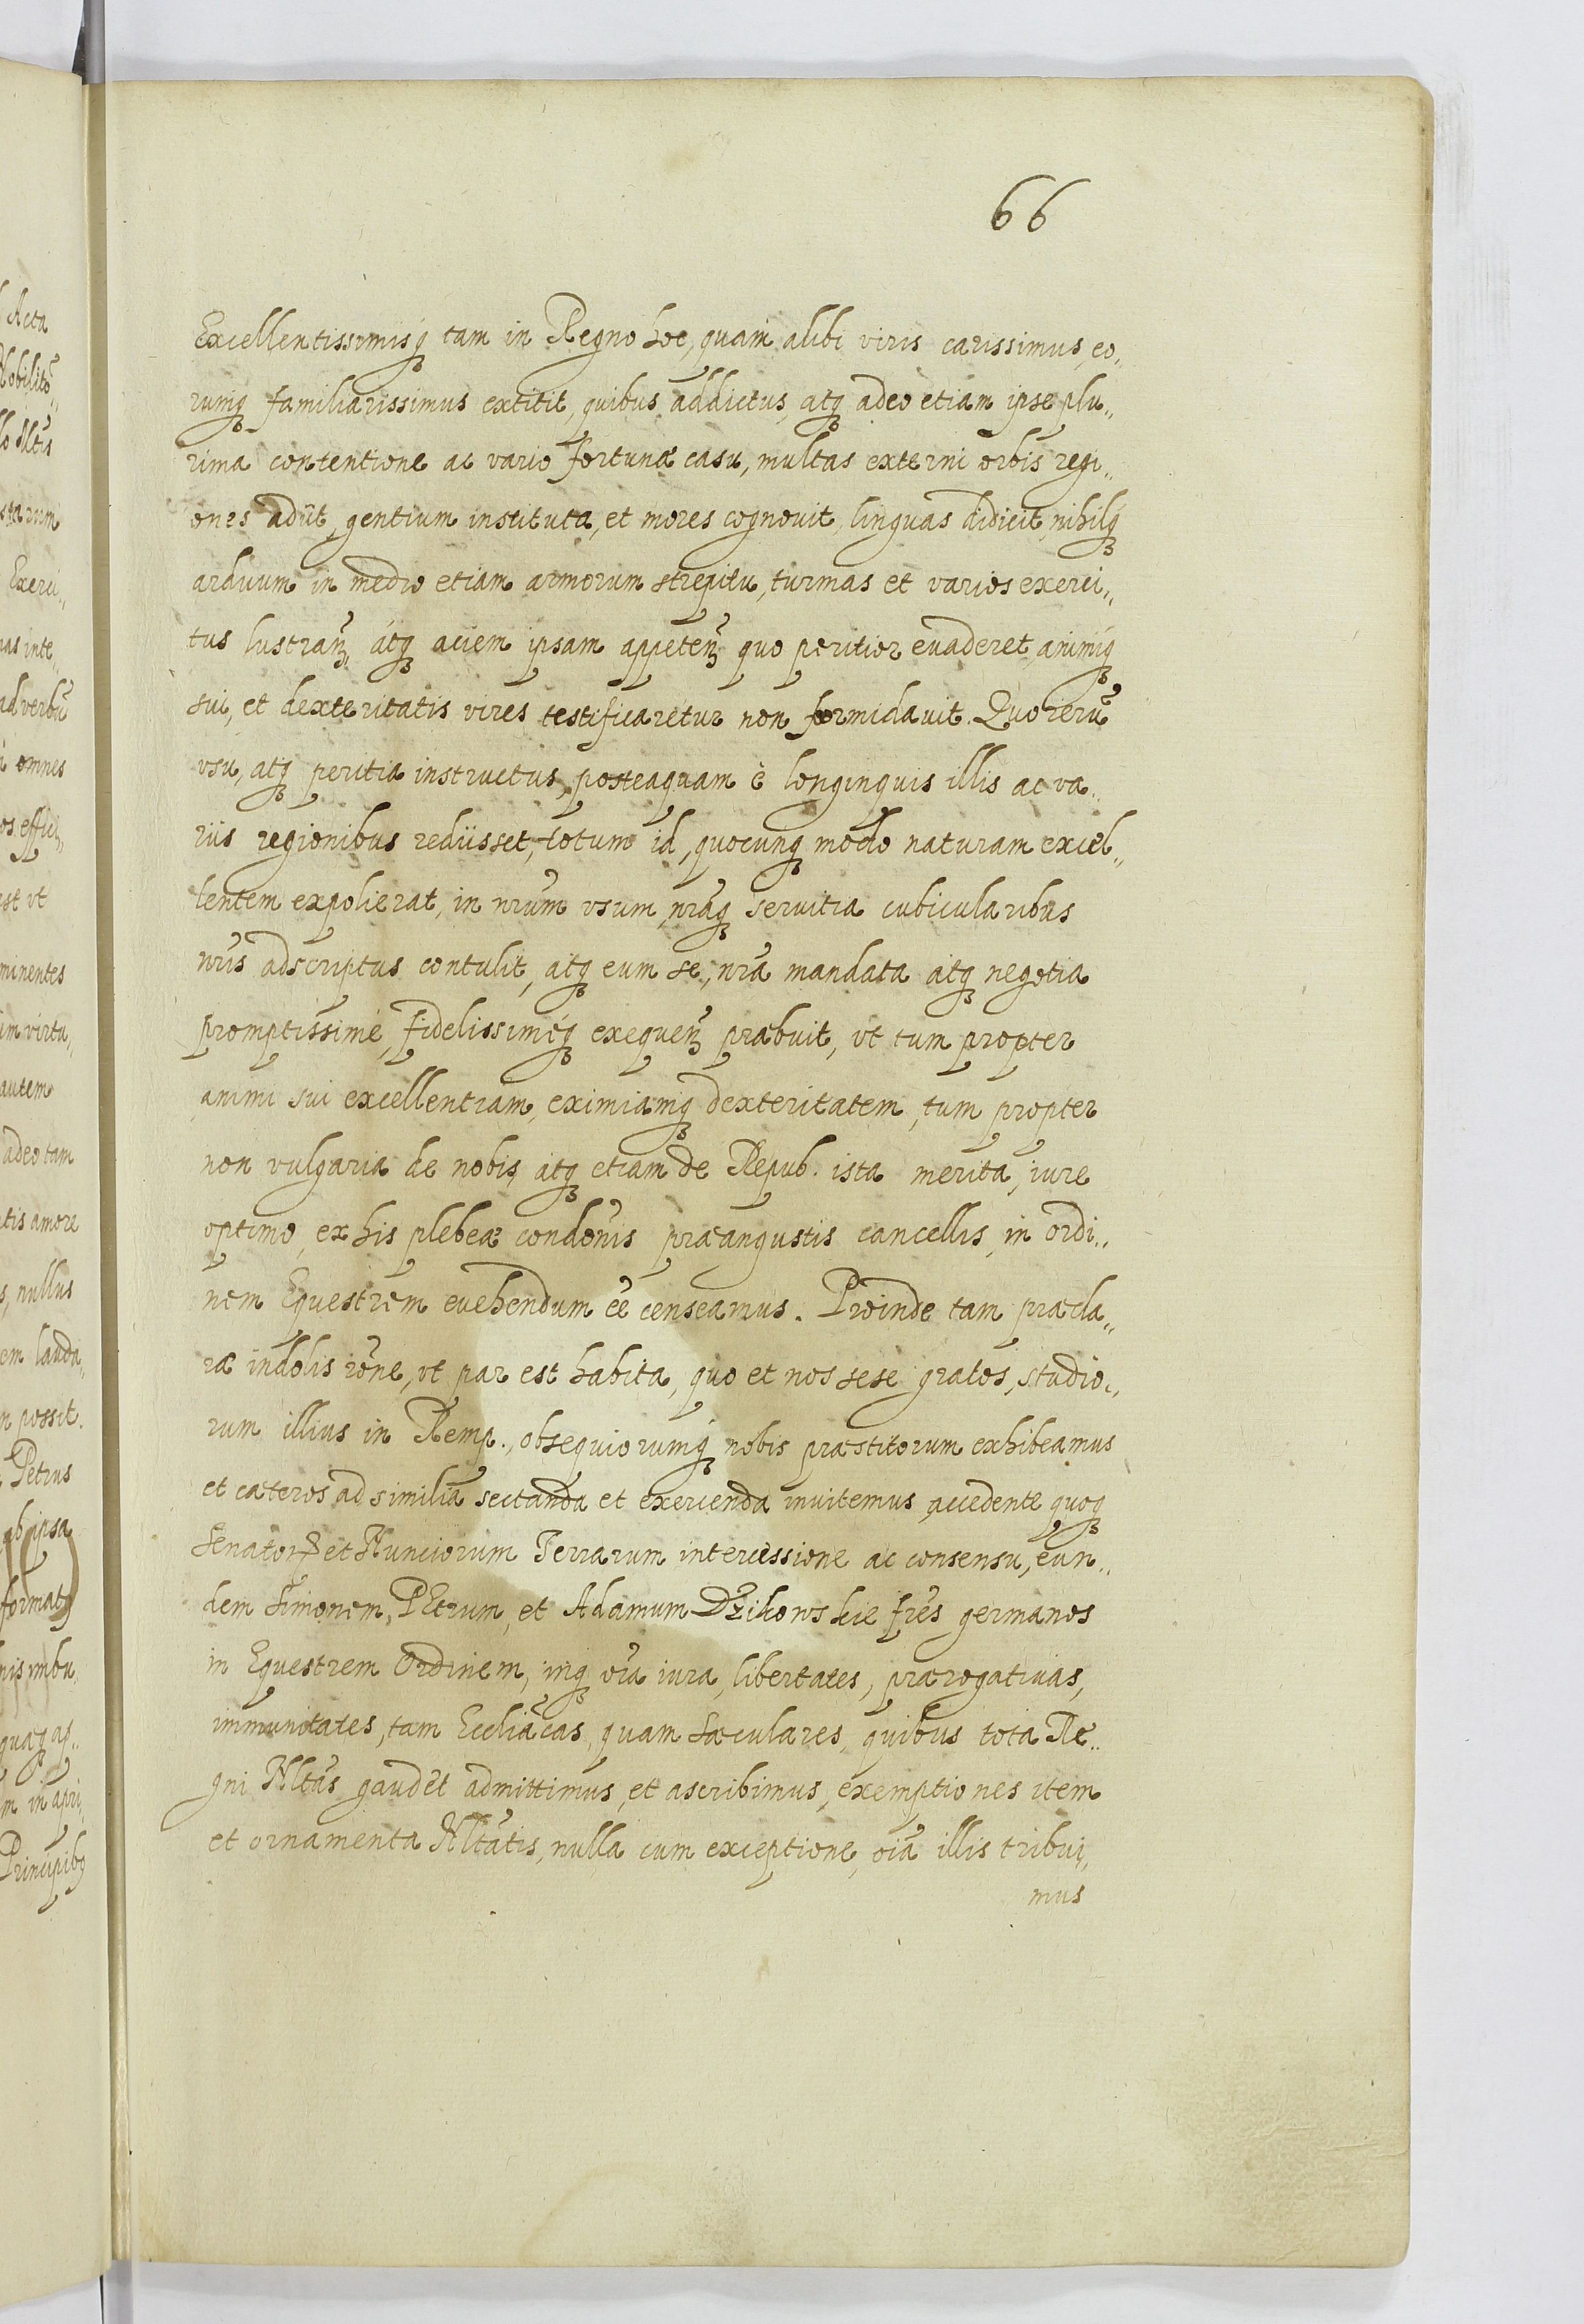 66
Excellentissimisq́ tam in Regno hoc, quam alibi viris carissimus, eo„
rumq́ familiarissimus extitit, quibus addictus, atq́ adeo etiam ipse plu„
rima contentione ac vario fortunæ casu, multas externi orbis regi„
ones adijt, gentium instituta, et mores cognovit, linguas didicit, nihilq́
arduum in medio etiam armorum strepitu, turmas et varios exerci„
tus lustrañ, atq́ aciem ipsam appeteñ quo peritior evaderet, animiq́
sui, et dexteritatis vires testificaretur non formidavit. Quo rerũ
vsu, atq́ peritia instructus, posteaquam è longinquis illis ac va„
riis regionibus rediisset, totum id, quocunq́ modo naturam excel„
lentem expolierat, in nrũm vsum, nrãq́ servitia cubicularibus
nrĩs adscriptus contulit, atq́ eum se, nrã mandata atq́ negotia
promptissimè, fidelissimèq́ exequeñ præbuit, vt tum propter
animi sui excellentiam, eximiamq́ dexteritatem, tum propter
non vulgaria de nobis, atq́ etiam de Repub. ista merita, iure
optimo, ex his plebeæ condõnis præangustis cancellis, in ordi„
nem Equestrem evehendum eẽ censeamus. Proinde tam præcla„
ræ indolis rõne, vt par est habita, quo et nos sese gratos, studio„
rum illius in Remp., obsequiorumq́ nobis præstitorum exhibeamus
et cæteros ad similia sectanda et exercenda invitemus, accedente quoq́
Senatorꝝ et Nunciorum Terrarum intercessione ac consensu, eun„
dem Simonem, PEtrum, et Adamum Dżikowskie frẽs germanos
in Equestrem Ordinem, inq́ oĩa iura, libertates, prærogativas,
immunitates, tam Eccliãcas, quam sæculares, quibus tota Re„
gni Nltãs gaudet admittimus, et ascribimus, exemptiones item
et ornamenta Nltãtis, nulla cum exceptione, oĩa illis tribui„
mus